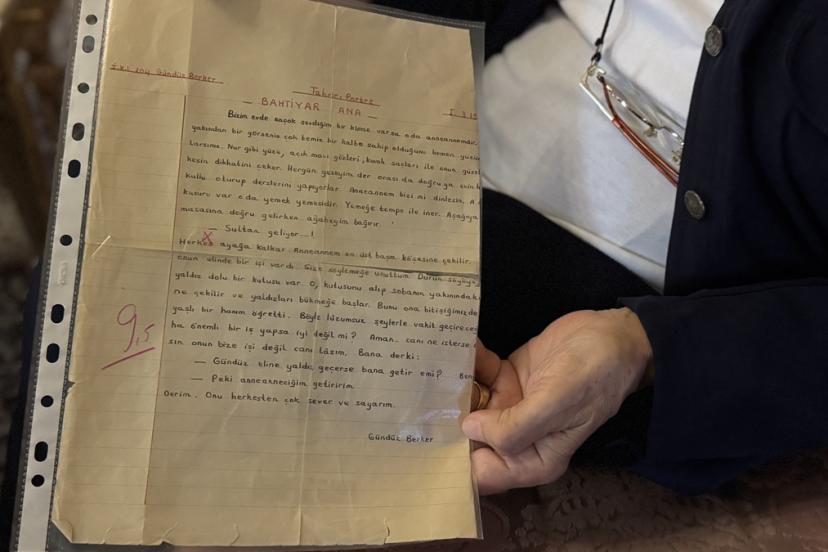 204 Gündüz Berker
Tahrir Portre
— BAHTİYAR ANA —
Bizim evde en çok sevdiğim bir kimse varsa o da anneannemdir.
yakından bir görseniz çok temiz bir kalbe sahip olduğunu hemen
larsınız. Nur gibi yüzü, açık mavi gözleri, kumlu saçları ile onun
kesin dikkatini çeker. Hergün
kulu oturup derslerini yapıyorlar. Anneannem bizi mi dinlesin.
kusuru var o da yemek yemesidir. Yemeğe tempo ile iner. Aşağıya
masasına doğru gelirken ağabeyim bağırır.
— Sultan geliyor...!
Herkes ayağa kalkar. Anneannem en üst başın köşesine çekilir.
onun elinde bir işi vardı. Size söylemeğe unuttum. Durun söyliyey
yaldız dolu bir kutusu var. O, kutusunu alıp sobanın yakınındaki
ne çekilir ve yaldızları bükmeğe başlar. Bunu ona bitişiğimizde
yaşlı bir hanım öğretti. Böyle lüzumsuz şeylerle vakit geçirece
ha önemli bir iş yapsa iyi değil mi? Aman.. canı ne isterse
sın onun bize işi değil canı lâzım. Bana derki:
— Gündüz eline yaldız geçerse bana getir emi?... Ben
— Peki anneanneciğim getiririm
Derim. Onu herkesten çok sever ve sayarım.
9,5
Gündüz Berker